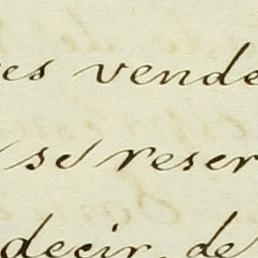 es vende
se reser
decir, de